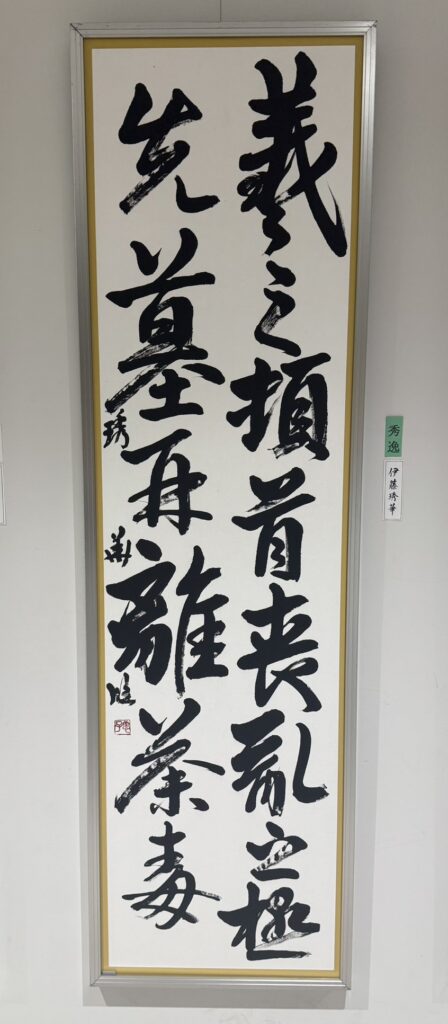 羲之頓首喪亂之極
先墓再離荼毒
琇華臨
秀逸
伊藤琇華